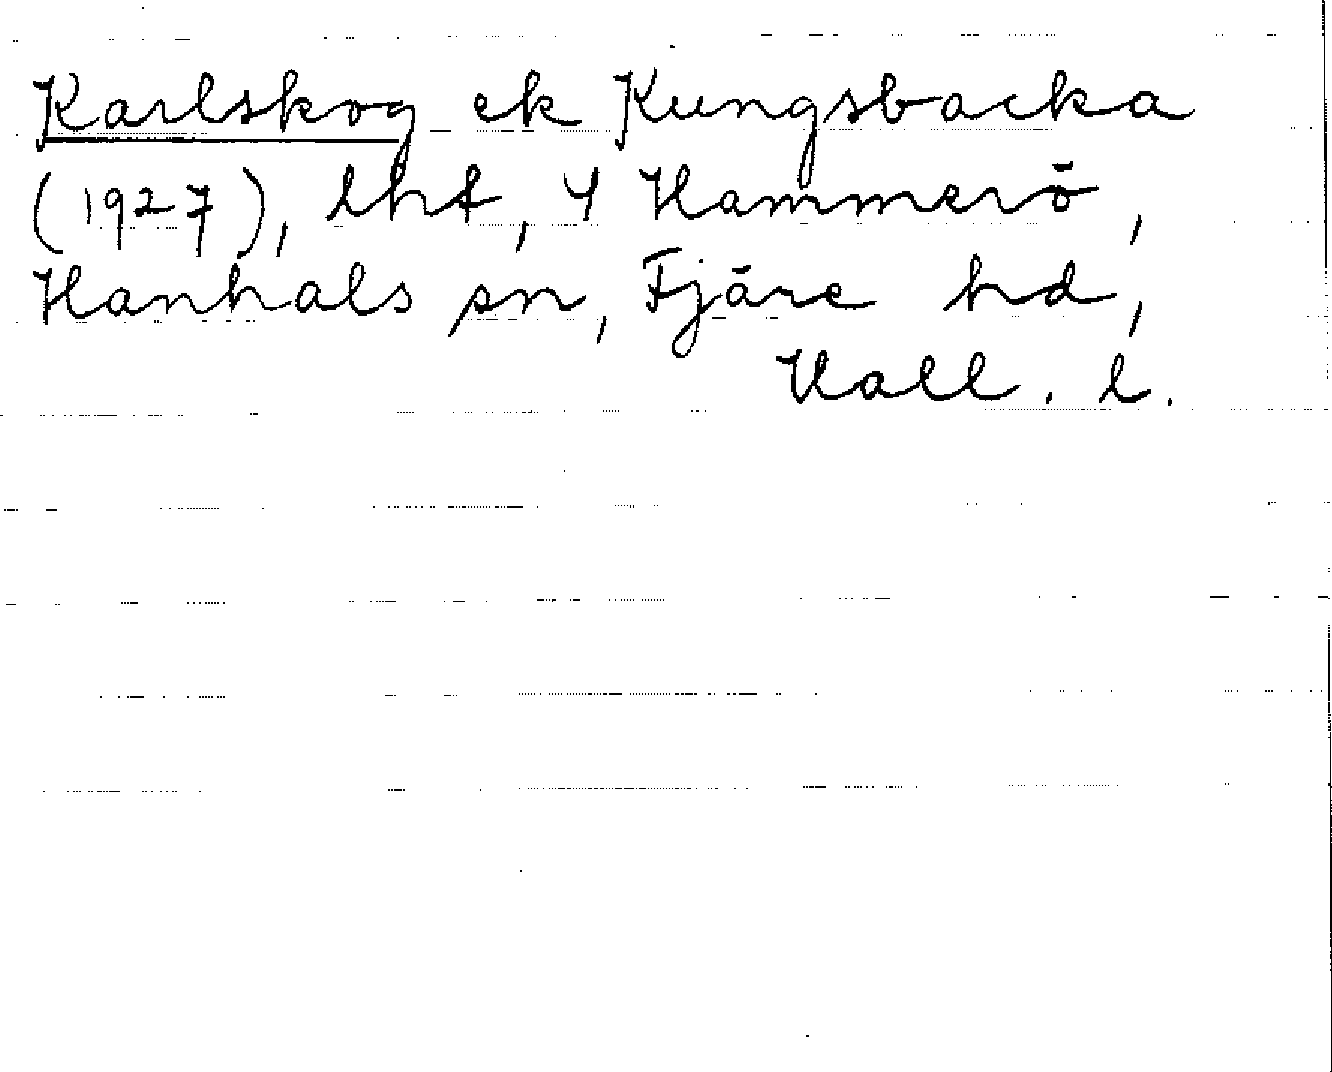 Karlskog ek Kungsbacka
(1927), lht, 4 Hammerö,
Hanhals sn, Fjäre hd,
Hall. l.